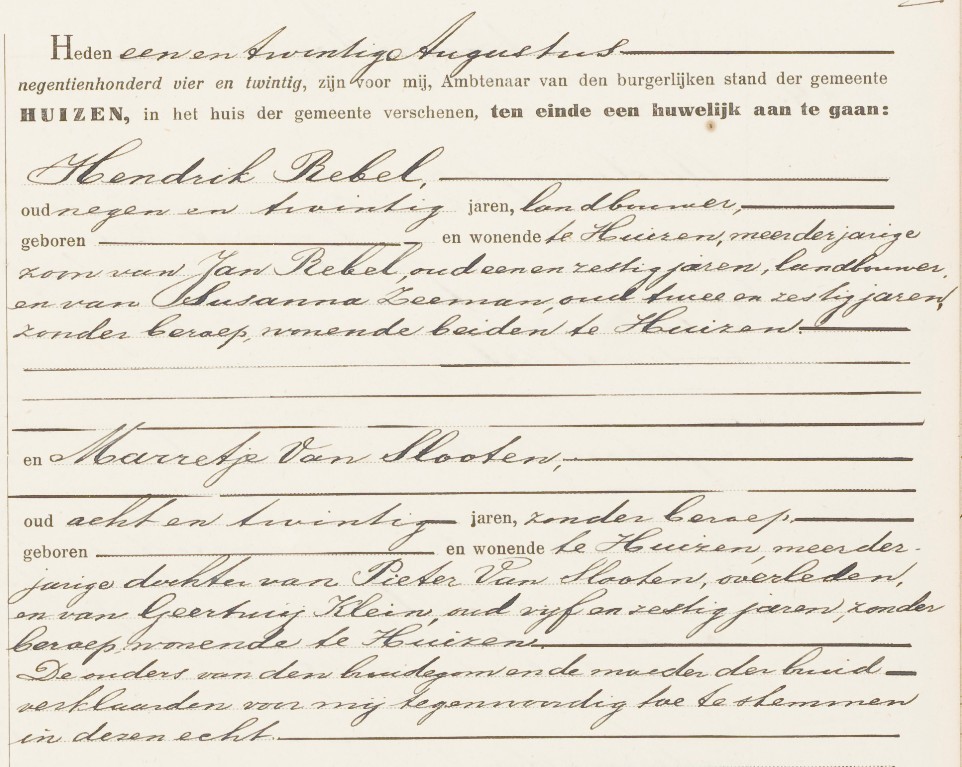 Heden een en twintig Augustus
negentienhonderd vier en twintig, zijn voor mij, Ambtenaar van den burgerlijken stand der gemeente
HUIZEN, in het huis der gemeente verschenen, ten einde een huwelijk aan te gaan:
Hendrik Rebel,
oud negen en twintig jaren, landbouwer,
geboren en wonende te Huizen, meerderjarige
zoon van Jan Rebel, oud een en zestig jaren, landbouwer,
en van Susanna Zeeman, oud twee en zestig jaren,
zonder beroep, wonende beiden te Huizen.
en Marretje Van Slooten,
oud acht en twintig jaren, zonder beroep,
geboren en wonende te Huizen, meerder-
jarige dochter van Pieter Van Slooten, overleden,
en van Geertruij Klein, oud vyf en zestig jaren, zonder
beroep, wonende te Huizen.
De ouders van den bruidegom en de moeder der bruid
verklaarden voor mij tegenwoordig toe te stemmen
in dezen echt.